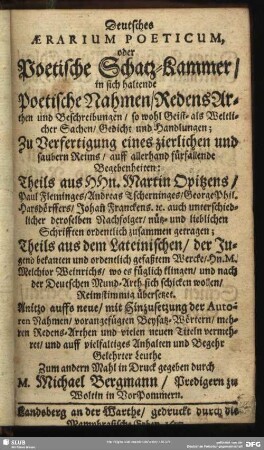 Deutsches
ÆRARIUM POETICUM,
oder
Poetische Schatz-Kammer/
in sich haltende
Poetische Nahmen/RedensAr-
then und Beschreibungen/ so wohl Geist- als Weltli-
cher Sachen/ Gedicht und Handlungen;
Zu Verfertigung eines zierlichen und
saubern Reims/ auff allerhand fürfallende
Begebenheiten:
Theils aus HHn. Martin Opitzens/
Paul Fleminges/ Andreas Tscherninges/ George Phil.
Harsdörffers/ Johan Franckens. ec. auch unterschied-
licher deroselben Nachfolger/ nütz- und lieblichen
Schrifften ordentlich zusammen getragen;
Theils aus dem Lateinischen/ der Ju-
gend bekanten und ordentlich gefastem Wercke/ Hn. M.
Melchior Weinrichs/ wo es füglich klingen/ und nach
der Deutschen Mund-Arth sich schicken wollen/
Reimstimmig übersetzet.
Anitzo auffs neue/ mit Hinzusetzung der Auto-
ren Nahmen/ vorangefügten Beysatz-Wörtern/ meh-
ren Redens-Arthen und vielen neuen Titeln vermeh-
ret/ und auff vielfaltiges Anhalten und Begehr
Gelehrter Leuthe
Zum andern Mahl in Druck gegeben durch
M. Michael Bergmann/ Predigern zu
Wolein in VorPommern.
Landsberg an der Warthe/ gedruckt durch die
SLUB